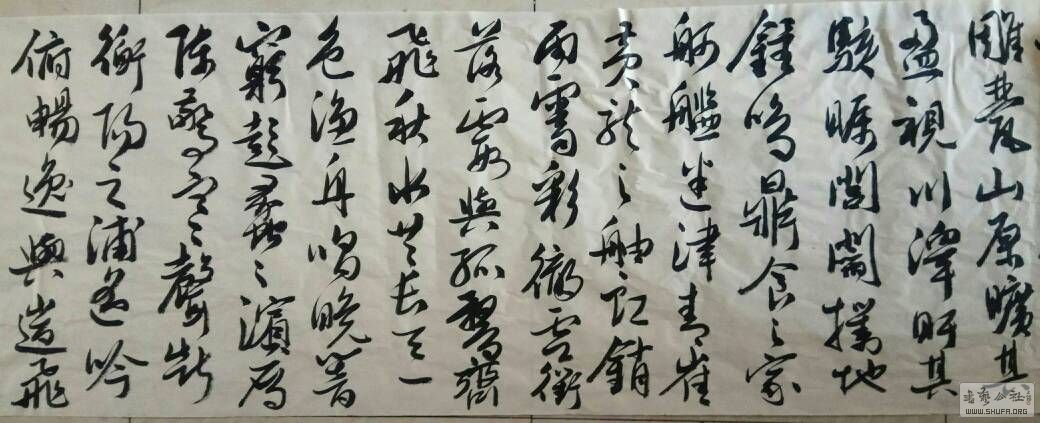 雕甍山原曠其
盈視川澤盱其
駭矚閭閻撲地
鍾鳴鼎食之家
舸艦迷津青雀
黄龍之舳虹銷
雨霽彩徹雲衢
落霞與孤鶩齊
飛秋水共長天一
色漁舟唱晚響
窮彭蠡之濱雁
陣驚寒聲斷
衡陽之浦遙吟
俯暢逸興遄飛
书艺公社
WWW.SHUFA.ORG